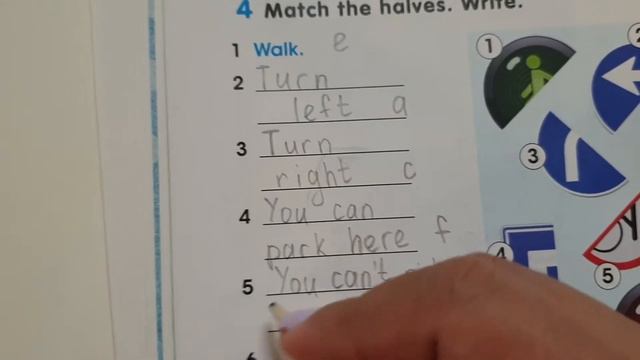 4 Match the halves. Write.
1 Walk. e
2 Turn
left a
3 Turn
right c
4 You can
park here f
5 You can't
1
2
3
4
5